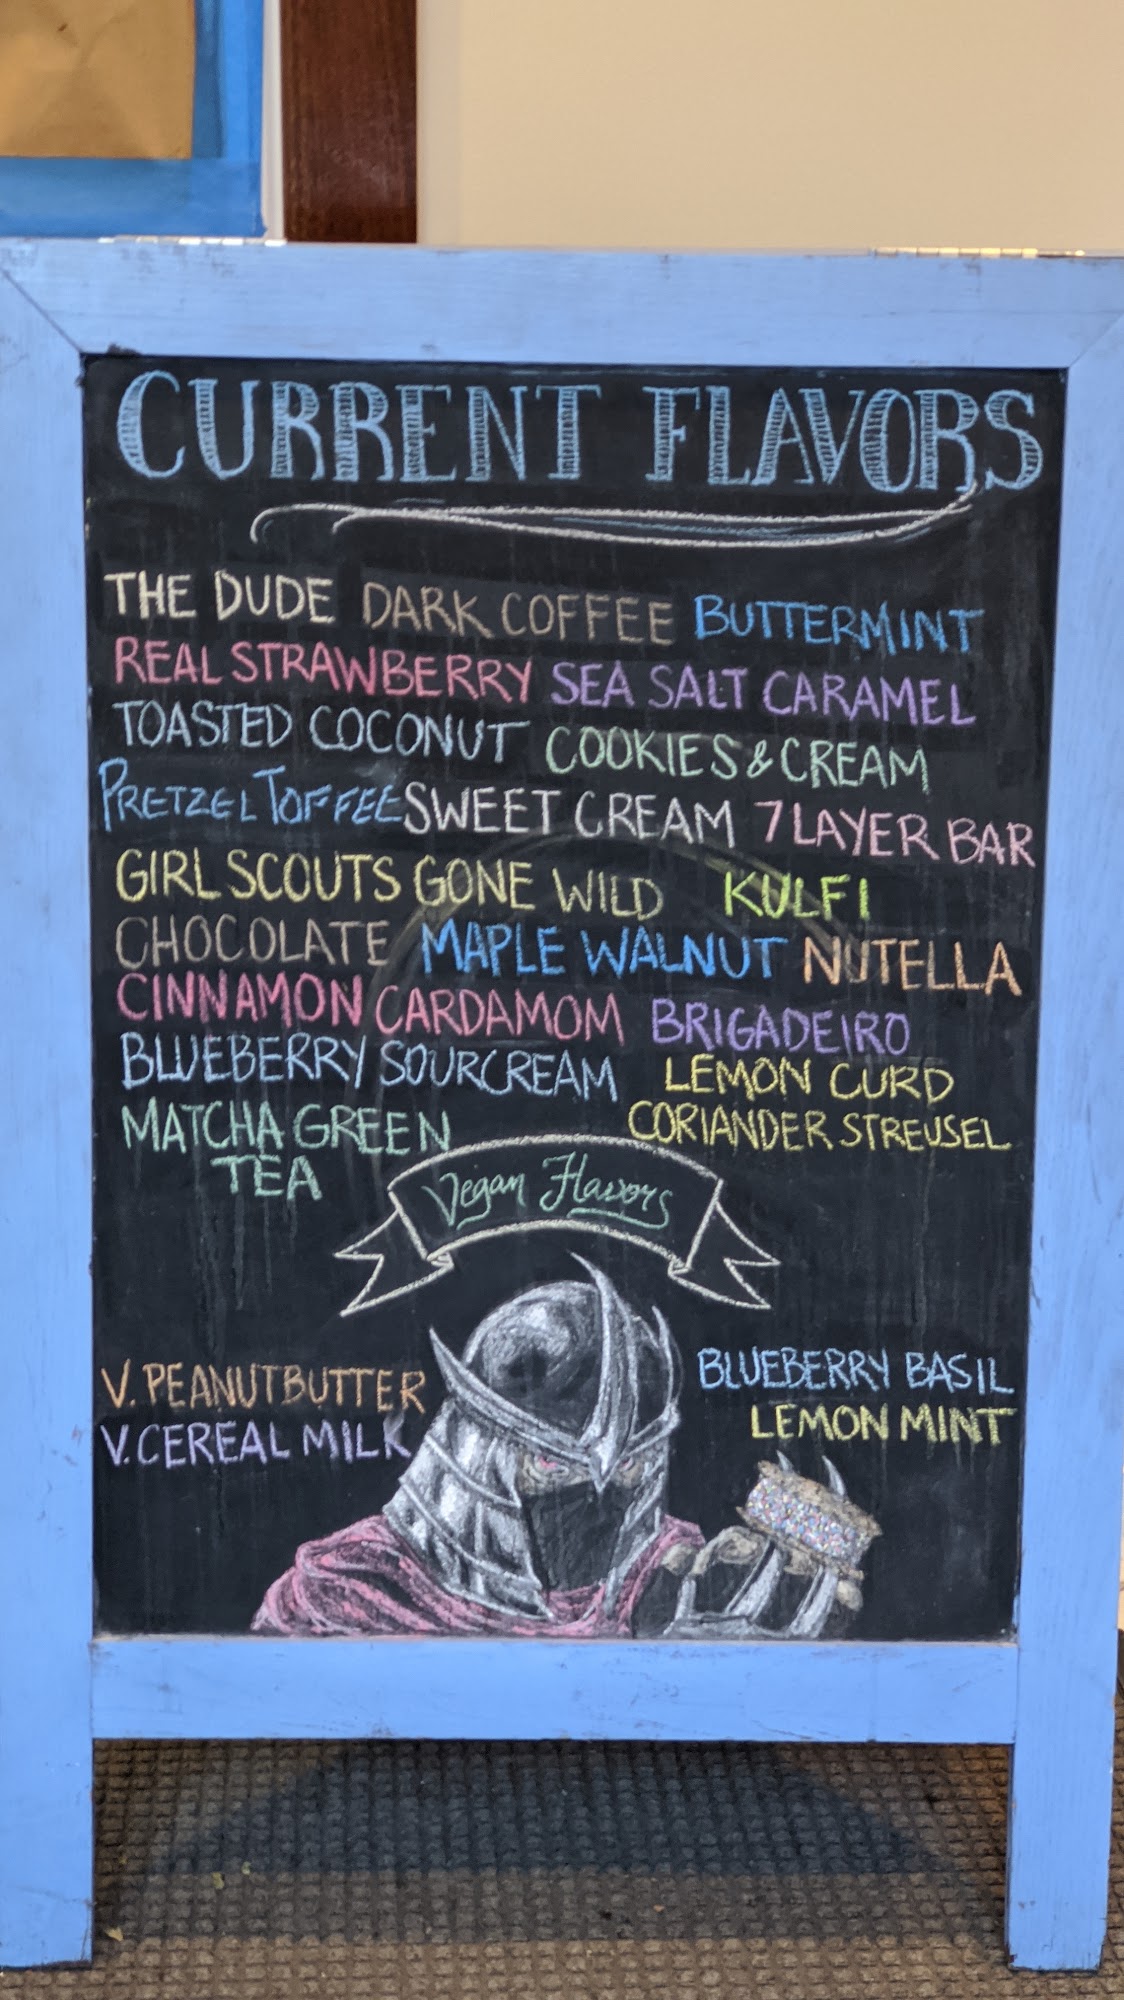 CURRENT FLAVORS
THE DUDE DARK COFFEE BUTTERMINT
REAL STRAWBERRY SEA SALT CARAMEL
TOASTED COCONUT COOKIES & CREAM
PRETZEL TOFFEE SWEET CREAM 7 LAYER BAR
GIRL SCOUTS GONE WILD KULFI
CHOCOLATE MAPLE WALNUT NUTELLA
CINNAMON CARDAMOM BRIGADEIRO
BLUEBERRY SOURCREAM LEMON CURD
MATCHA GREEN CORIANDER STREUSEL
TEA
Vegan Flavors
V. PEANUTBUTTER BLUEBERRY BASIL
V. CEREAL MILK LEMON MINT